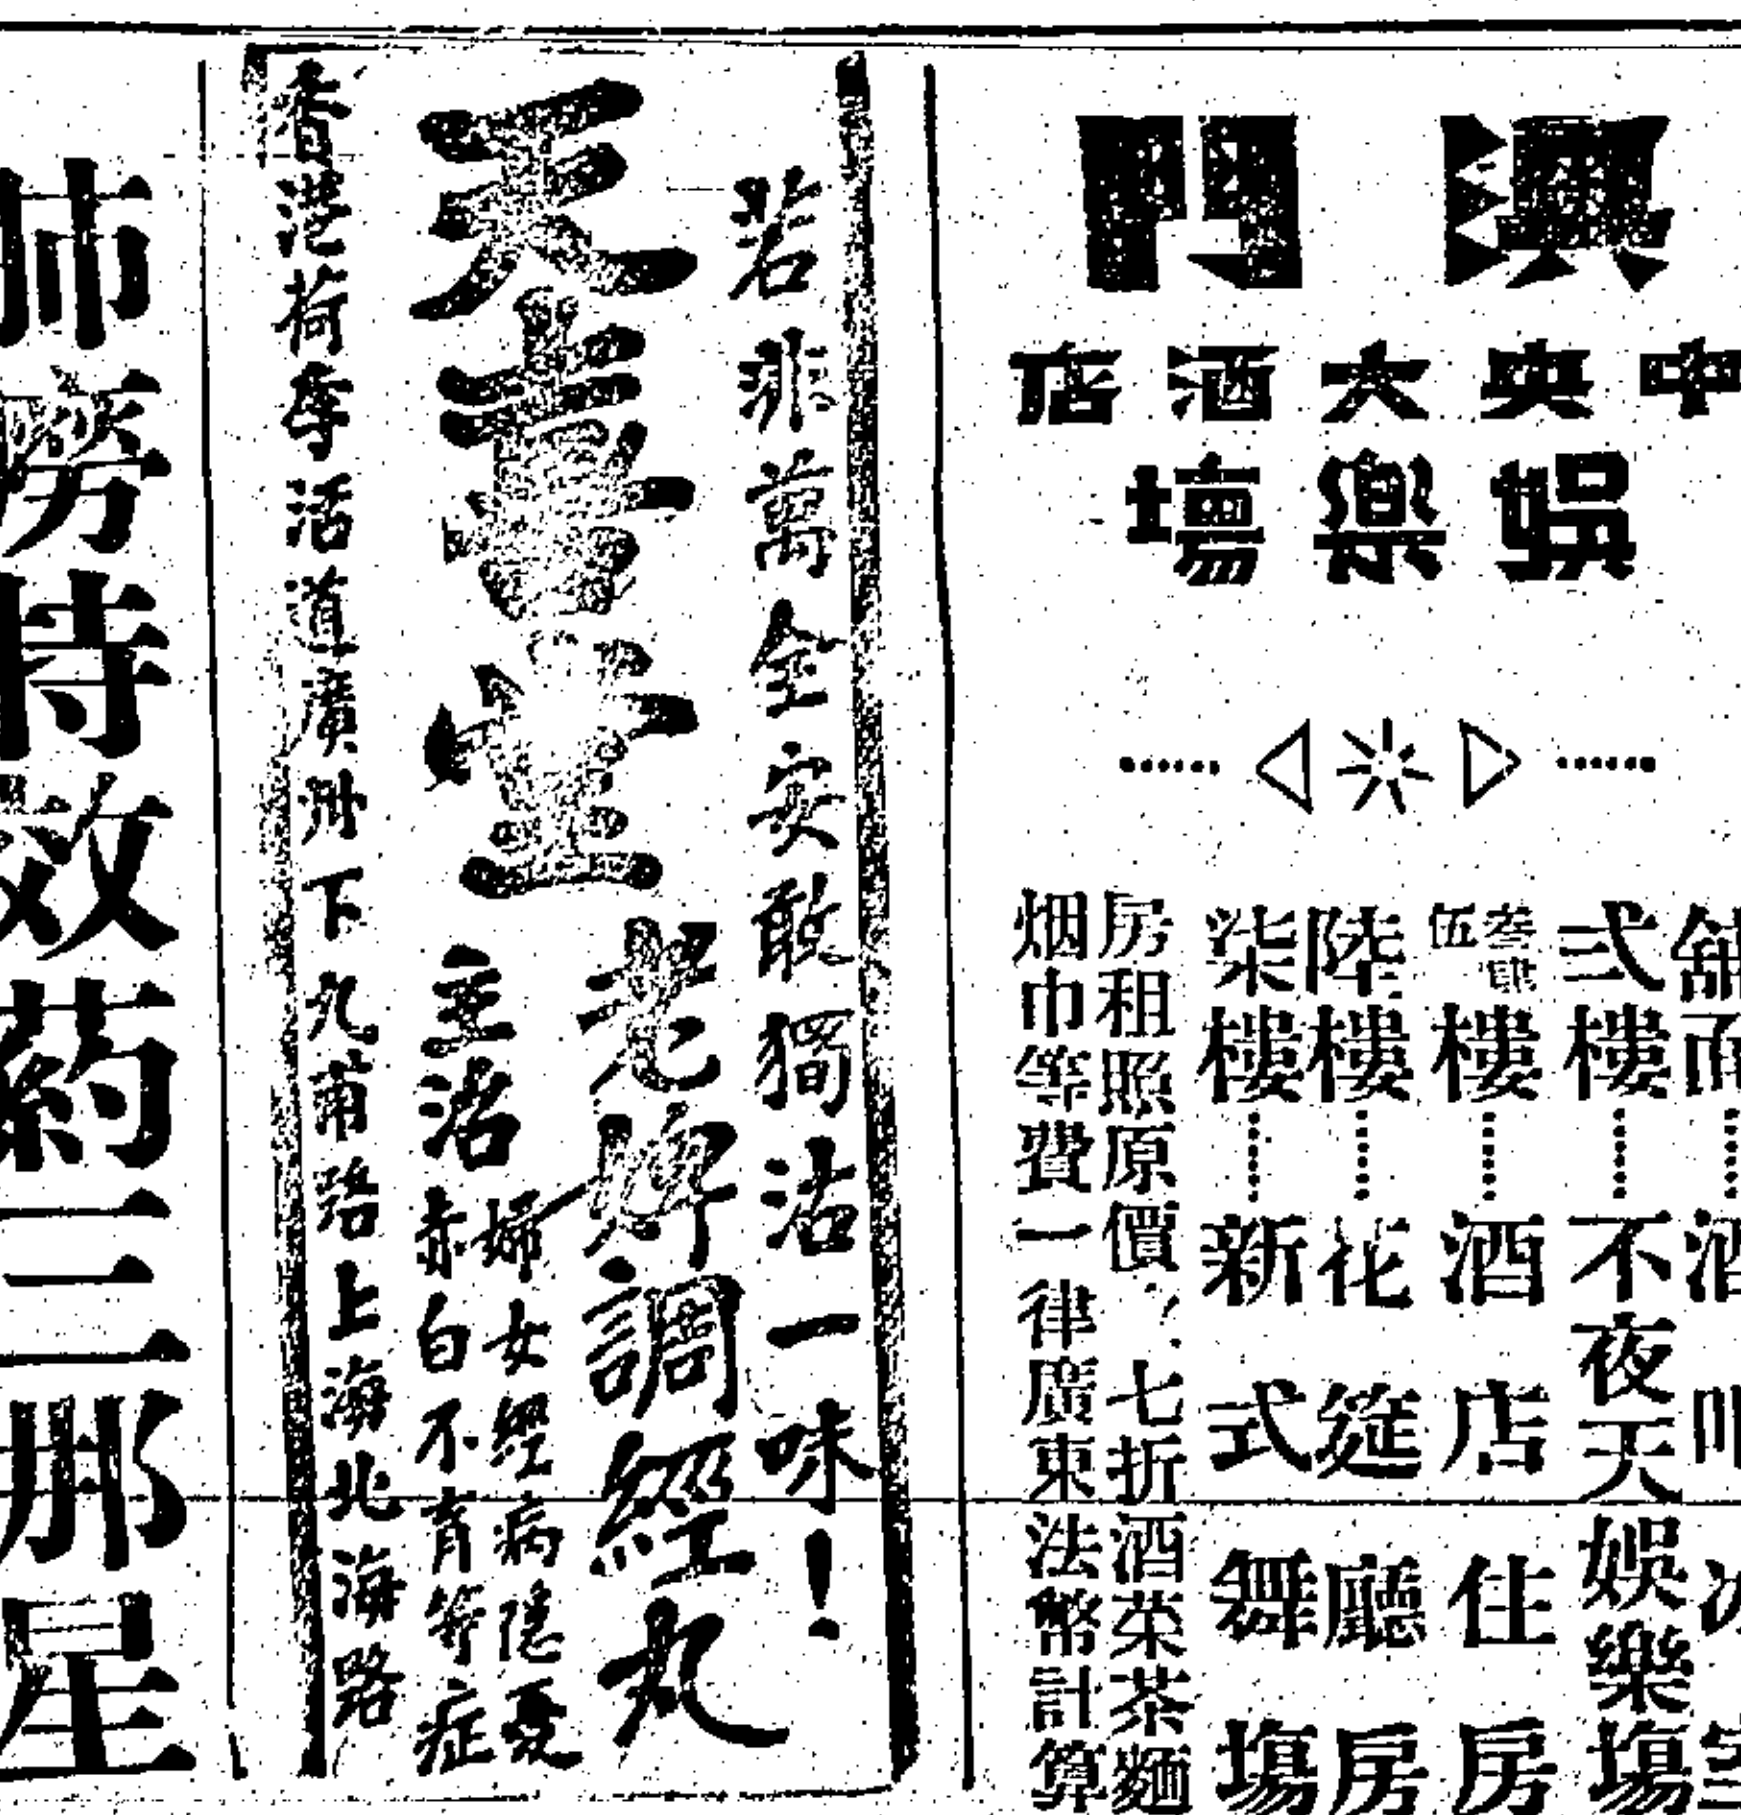 澳門
中央大酒店
娛樂場
舖面……酒吧
弍樓……不夜天娛樂塲
叁肆伍樓……酒店住房
陸樓……花筵廳房
柒樓……新式舞塲
房租照原價七折酒菜茶麵
烟巾等費一律廣東法幣計算
若非萬全安敢獨沽一味！
天壹堂
老牌調經丸
主治
婦女經病隱憂
赤白不育等症
香港荷李活道廣州下九甫路上海北海路
肺癆特效葯三那星